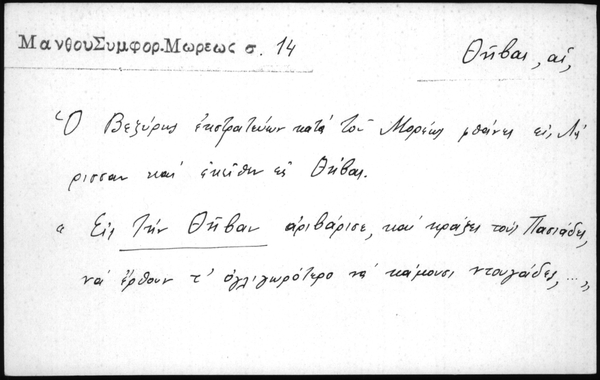 ΜανθουΣυμφορ.Μωρεως σ. 14
Θῆβαι, αἱ,
Ὁ Βεζύρης ἐκστρατεύων κατά τοῦ Μορέως φθάνει εἰς Λά
ρισσαν καί ἐκεῖθεν εἰς Θήβας.
" Εἰς τήν Θῆβαν ἀριβάρισε, καί κράζει τούς Πασιάδες,
νά ἔρθουν τ' ὀγλιγωρότερο νά κάμουσι ντουγάδες, ... "